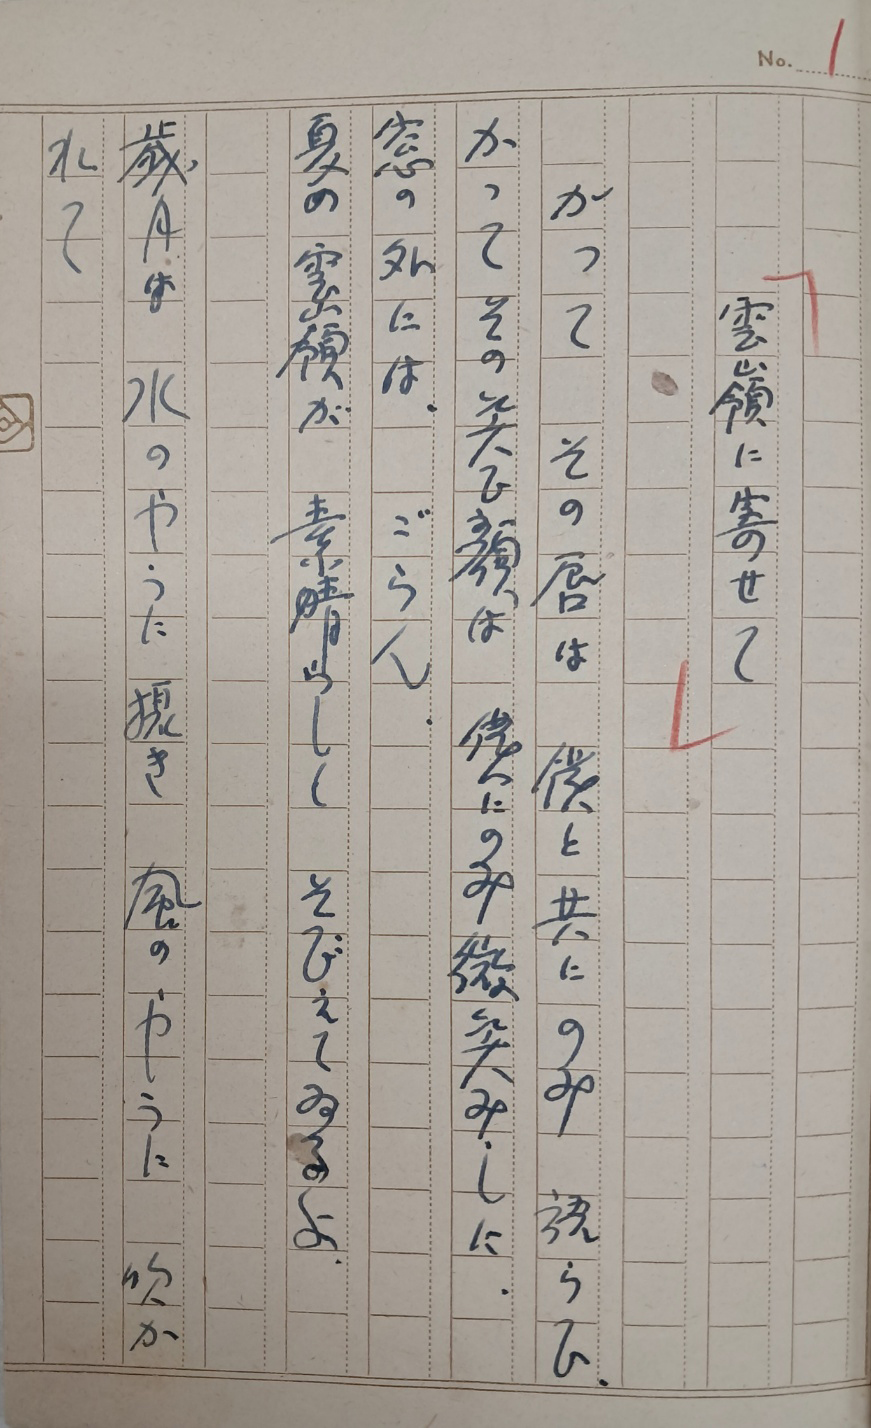 No. 1
雲嶺に寄せて
かつて その唇は 僕と共に のみ 語らひ.
かつて その笑ひ顔は 僕にのみ 微笑みしに.
窓の外には. ごらん.
夏の 雲嶺が 素晴らしく そびえてゐるよ.
歳月は 水のやうに 退き 風のやうに 吹か
れて